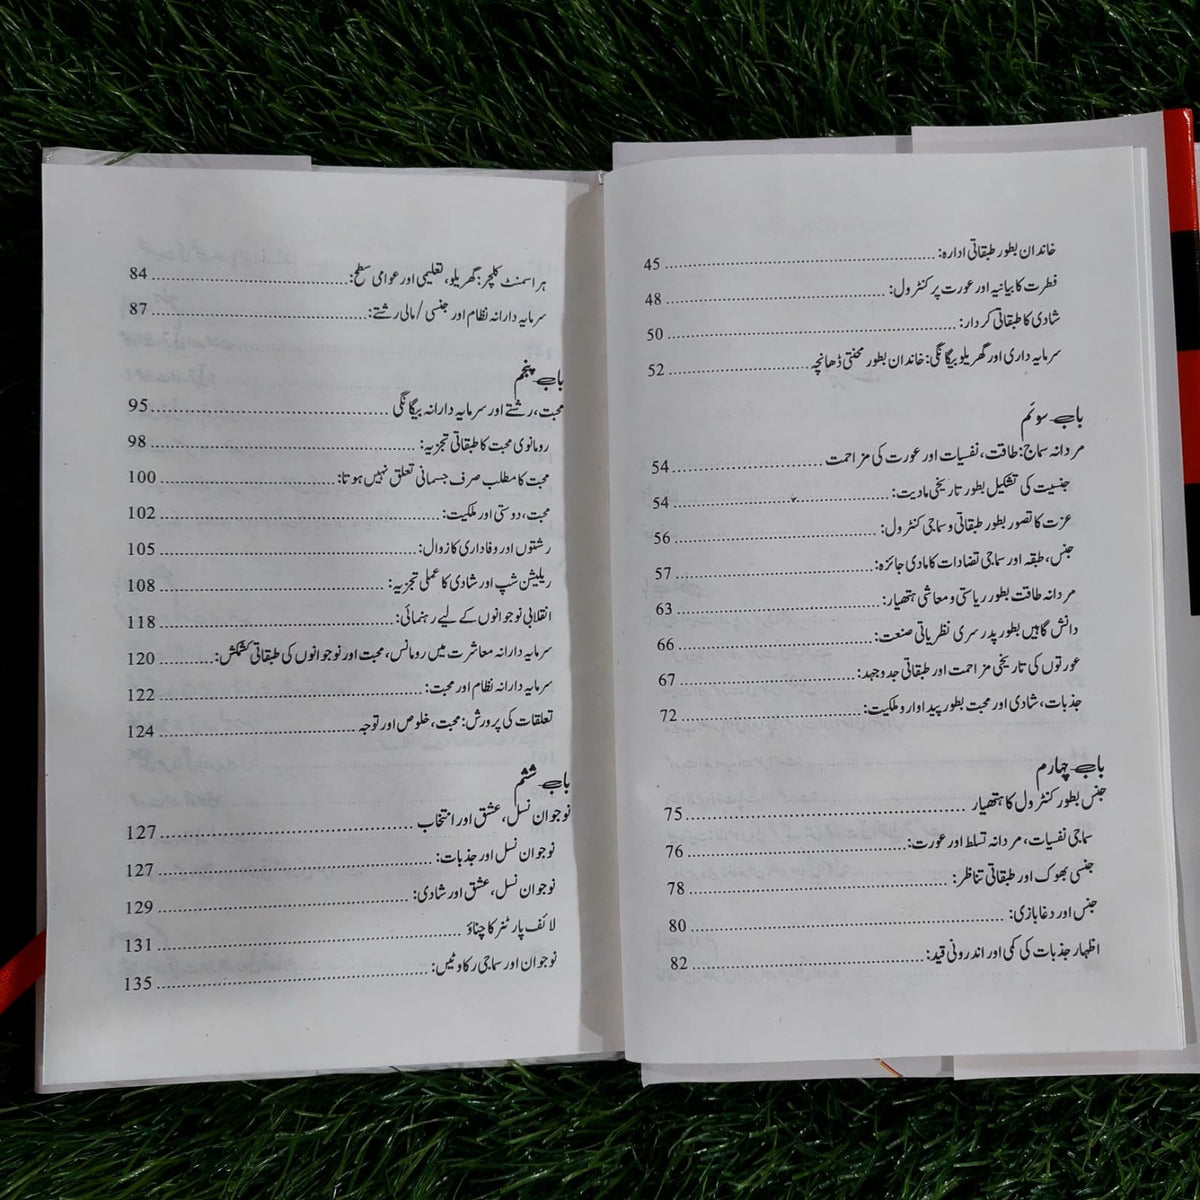 خاندان بطور طبقاتی ادارہ: 45
فطرت کا بیانیہ اور عورت پر کنٹرول: 48
شادی کا طبقاتی کردار: 50
سرمایہ داری اور گھریلو بیگانگی: خاندان بطور محنتی ڈھانچہ 52
باب سوئم
مردانہ سماج: طاقت، نفسیات اور عورت کی مزاحمت 54
جنسیت کی تشکیل بطور تاریخی مادیت: 54
عزت کا تصور بطور طبقاتی و سماجی کنٹرول: 56
جنس، طبقہ اور سماجی تضادات کا مادی جائزہ: 57
مردانہ طاقت بطور ریاستی و معاشی ہتھیار: 63
دانش گاہیں بطور پدرسری نظریاتی صنعت: 66
عورتوں کی تاریخی مزاحمت اور طبقاتی جدوجہد: 67
جذبات، شادی اور محبت بطور پیداوار و ملکیت: 72
باب چہارم
جنس بطور کنٹرول کا ہتھیار 75
سماجی نفسیات، مردانہ تسلط اور عورت: 76
جنسی بھوک اور طبقاتی تناظر: 78
جنس اور دغا بازی: 80
اظہار جذبات کی کمی اور اندرونی قید: 82
ہراسمنٹ کلچر: گھریلو، تعلیمی اور عوامی سطح: 84
سرمایہ دارانہ نظام اور جنسی / مالی رشتے: 87
باب پنجم
محبت، رشتے اور سرمایہ دارانہ بیگانگی 95
رومانوی محبت کا طبقاتی تجزیہ: 98
محبت کا مطلب صرف جسمانی تعلق نہیں ہوتا: 100
محبت، دوستی اور ملکیت: 102
رشتوں اور وفاداری کا زوال: 105
ریلیشن شپ اور شادی کا عملی تجزیہ: 108
انقلابی نوجوانوں کے لیے رہنمائی: 118
سرمایہ دارانہ معاشرت میں رومانس، محبت اور نوجوانوں کی طبقاتی کشمکش: 120
سرمایہ دارانہ نظام اور محبت: 122
تعلقات کی پرورش: محبت، خلوص اور توجہ 124
باب ششم
نوجوان نسل، عشق اور انتخاب 127
نوجوان نسل اور جذبات: 127
نوجوان نسل، عشق اور شادی: 129
لائف پارٹنر کا چناؤ 131
نوجوان اور سماجی رکاوٹیں: 135